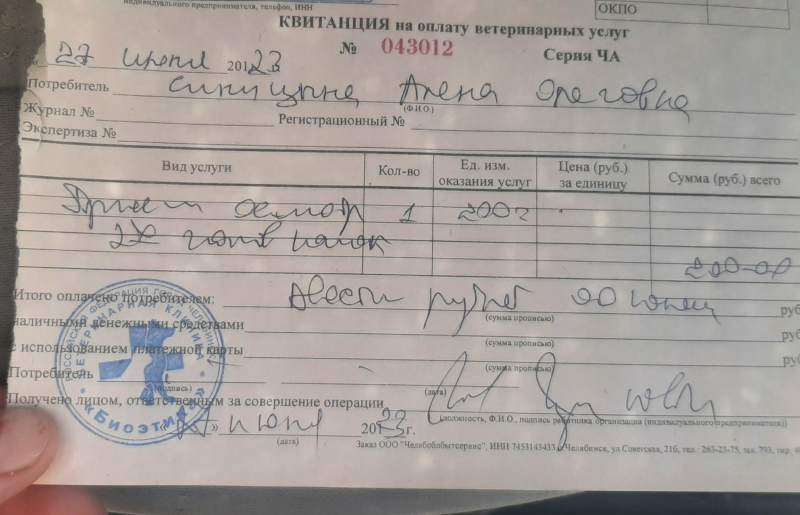 индивидуального предпринимателя, телефон, ИНН
ОКПО
КВИТАНЦИЯ на оплату ветеринарных услуг
№ 043012 Серия ЧА
27 июня 2023
Потребитель Синицына Алена Олеговна
(Ф.И.О.)
Журнал № Регистрационный №
Экспертиза №
Вид услуги Кол-во Ед. изм. оказания услуг Цена (руб.) за единицу Сумма (руб.) всего
Прием осмотр 1 200
200-00
Итого оплачено потребителем: Двести рублей 00 копеек руб
(сумма прописью)
наличными денежными средствами руб
(сумма прописью)
с использованием платежной карты руб
(сумма прописью)
Потребитель
(подпись) (дата)
Получено лицом, ответственным за совершение операции
(должность, Ф.И.О., подпись работника организации (индивидуального предпринимателя))
« » июня 2023г.
(дата)
Заказ ООО "Челябоблбытсервис", ИНН 7453143433 г. Челябинск, ул.Советская, 21б, тел.: 263-23-75, зак. 793, тир.
РОССИЙСКАЯ ФЕДЕРАЦИЯ ГОРОД ЧЕЛЯБИНСК
ВЕТЕРИНАРНАЯ КЛИНИКА
«Биоэтика»